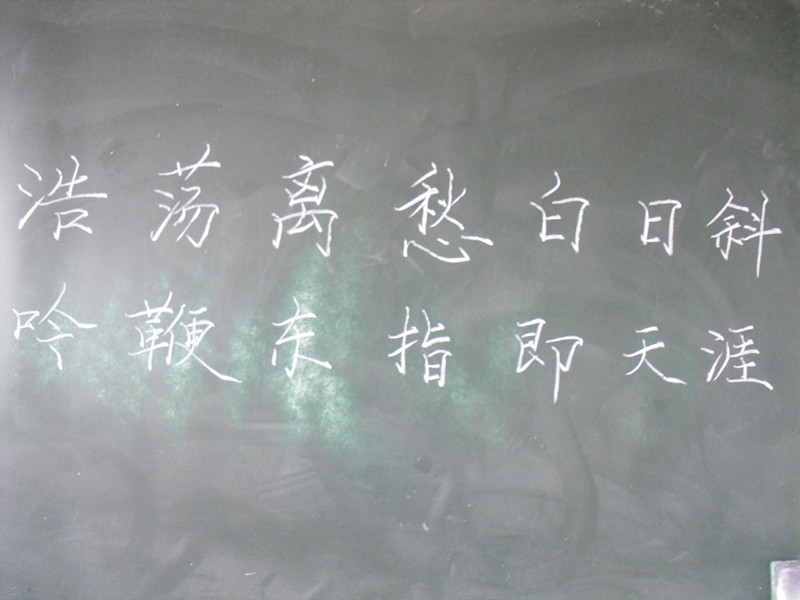 浩荡离愁白日斜
吟鞭东指即天涯